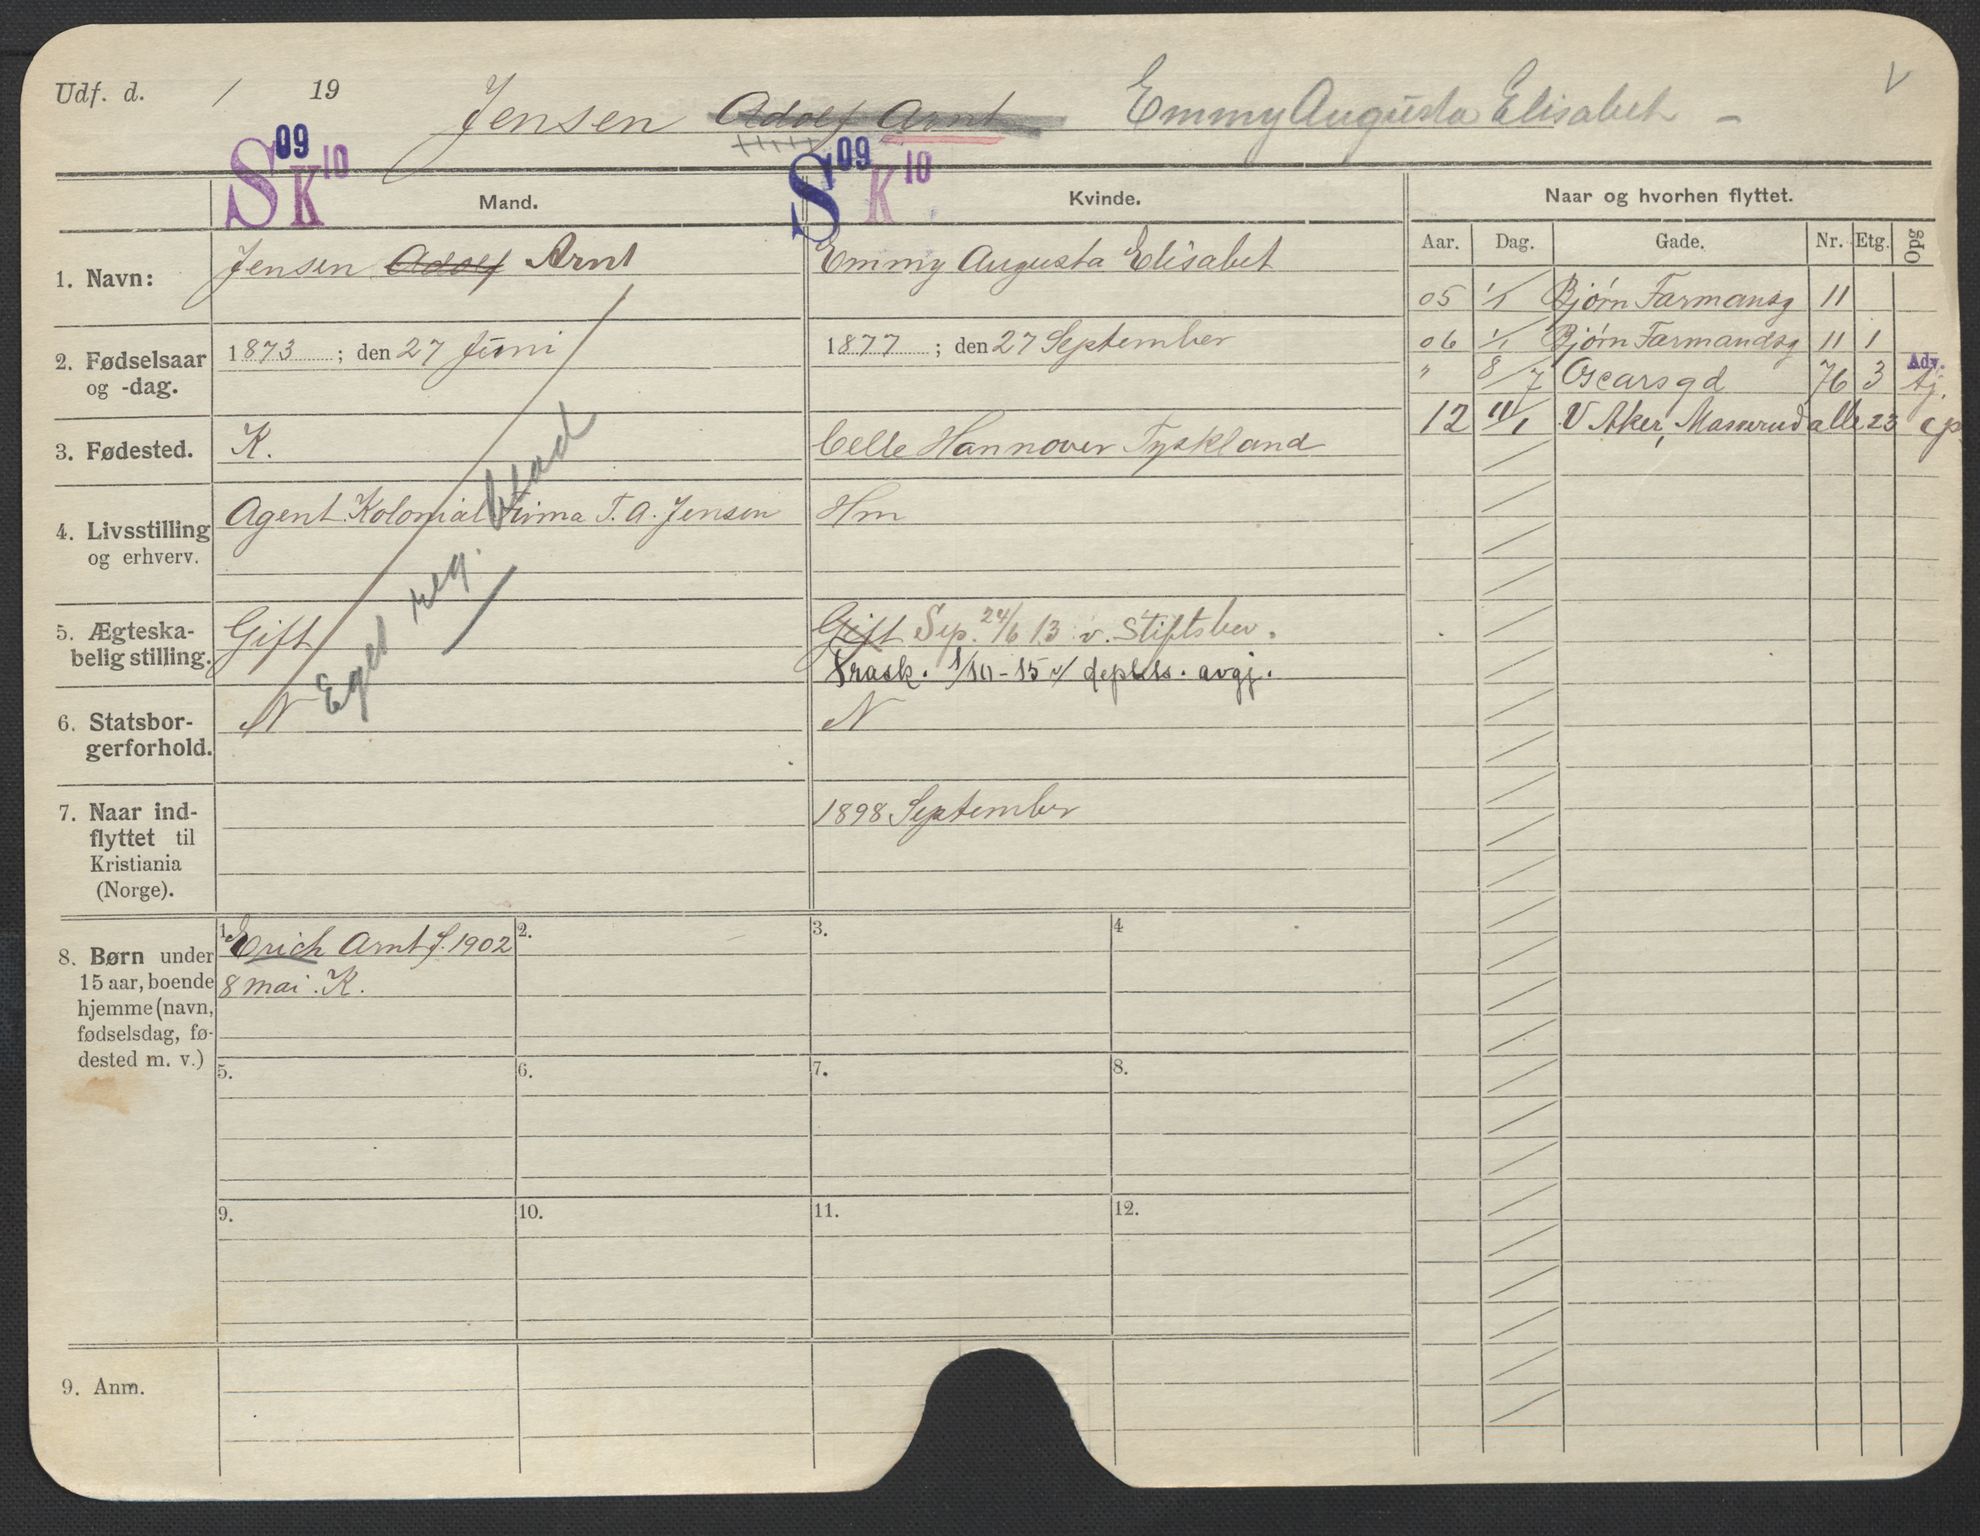 Udf. d. / 19
Jensen Adolf Arnt Emmy Augusta Elisabet -
V
S 09 K 10
S 09 K 10
Mand.
Kvinde.
Naar og hvorhen flyttet.
Aar. Dag. Gade. Nr. Etg. Opg
1. Navn:
Jensen Adolf Arnt
Emmy Augusta Elisabet
2. Fødselsaar
og -dag.
1873 ; den 27 Juni
1877 ; den 27 September
3. Fødested.
K.
Celle Hannover Tyskland
4. Livsstilling
og erhverv.
Agent. Kolonial Firma T. A. Jensen
Hm
5. Ægteska-
belig stilling.
Gift
Gift Sep. 24/6 13 v. Stiftsbev.
Frask. 1/10-15 v/ depts. avgj.
6. Statsbor-
gerforhold.
N
N
Eget reg. blad
7. Naar ind-
flyttet til
Kristiania
(Norge).
1898 September
8. Børn under
15 aar, boende
hjemme (navn,
fødselsdag, fø-
dested m. v.)
1. Erich Arnt f. 1902
8 mai. K.
2.
3.
4
5.
6.
7.
8.
9.
10.
11.
12.
9. Anm.
05 1/1 Bjørn Farmansg 11
06 1/1 Bjørn Farmandsg 11 1
Adv.
" 8/7 Oscarsgd 76 3 Aj.
12 11/1 V Aker, Masserud alle 23